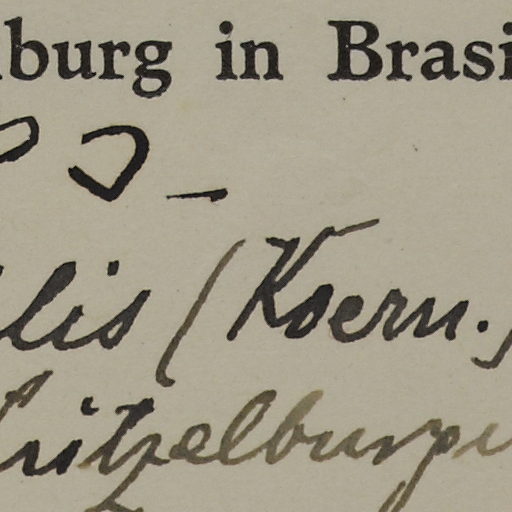 lburg in Brasi
lis (Koern.)
ritzelburge